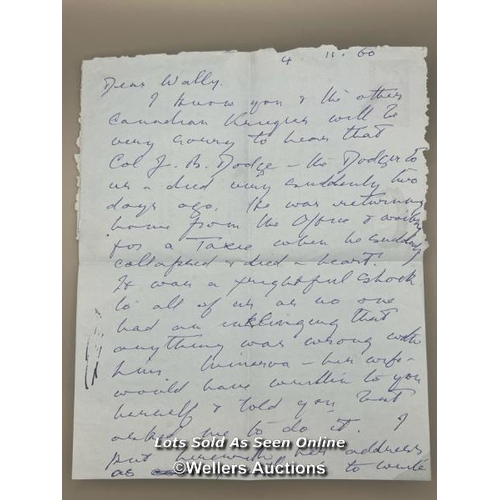 4 . 11 . 60
Dear Wally.
I know you & the other
Canadian Kriegies will be
very sorry to hear that
Col J. B. Dodge - the Dodger to
us - died very suddenly two
days ago. He was returning
home from the Office & waiting
for a Taxie when he suddenly
collapsed & died - heart!
It was a frightful shock
to all of us as no one
had an inklinging that
anything was wrong with
him Minerva - his wife -
would have written to you
herself & told you but
asked me to do it. I
put herewith her address
as to write
Lots Sold As Seen Online
©Wellers Auctions